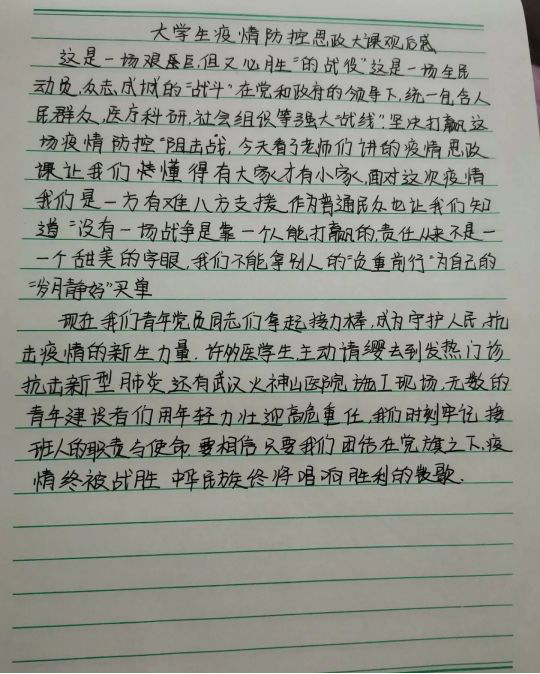 大学生疫情防控思政大课观后感
这是一场艰巨,但又必胜"的战役"这是一场全民
动员,众志成城的"战斗"在党和政府的领导下,统一包含人
民群众,医疗科研,社会组织等强大"战线".坚决打赢这
场疫情防控"阻击战,今天看了老师们讲的疫情思政
课让我们懂得有大家才有小家,面对这次疫情
我们是一方有难八方支援,作为普通民众也让我们知
道"没有一场战争是靠一个人能打赢的,责任从来不是一
一个甜美的字眼,我们不能拿别人的"负重前行"为自己的
"岁月静好"买单
现在我们青年党员同志们拿起接力棒,成为守护人民,抗
击疫情的新生力量.许多医学生主动请缨去到发热门诊
抗击新型肺炎还有武汉火神山医院施工现场,无数的
青年建设者们用年轻力壮迎高危重任,我们时刻牢记接
班人的职责与使命要相信只要我们团结在党旗之下,疫
情终被战胜 中华民族终将唱响胜利的凯歌.